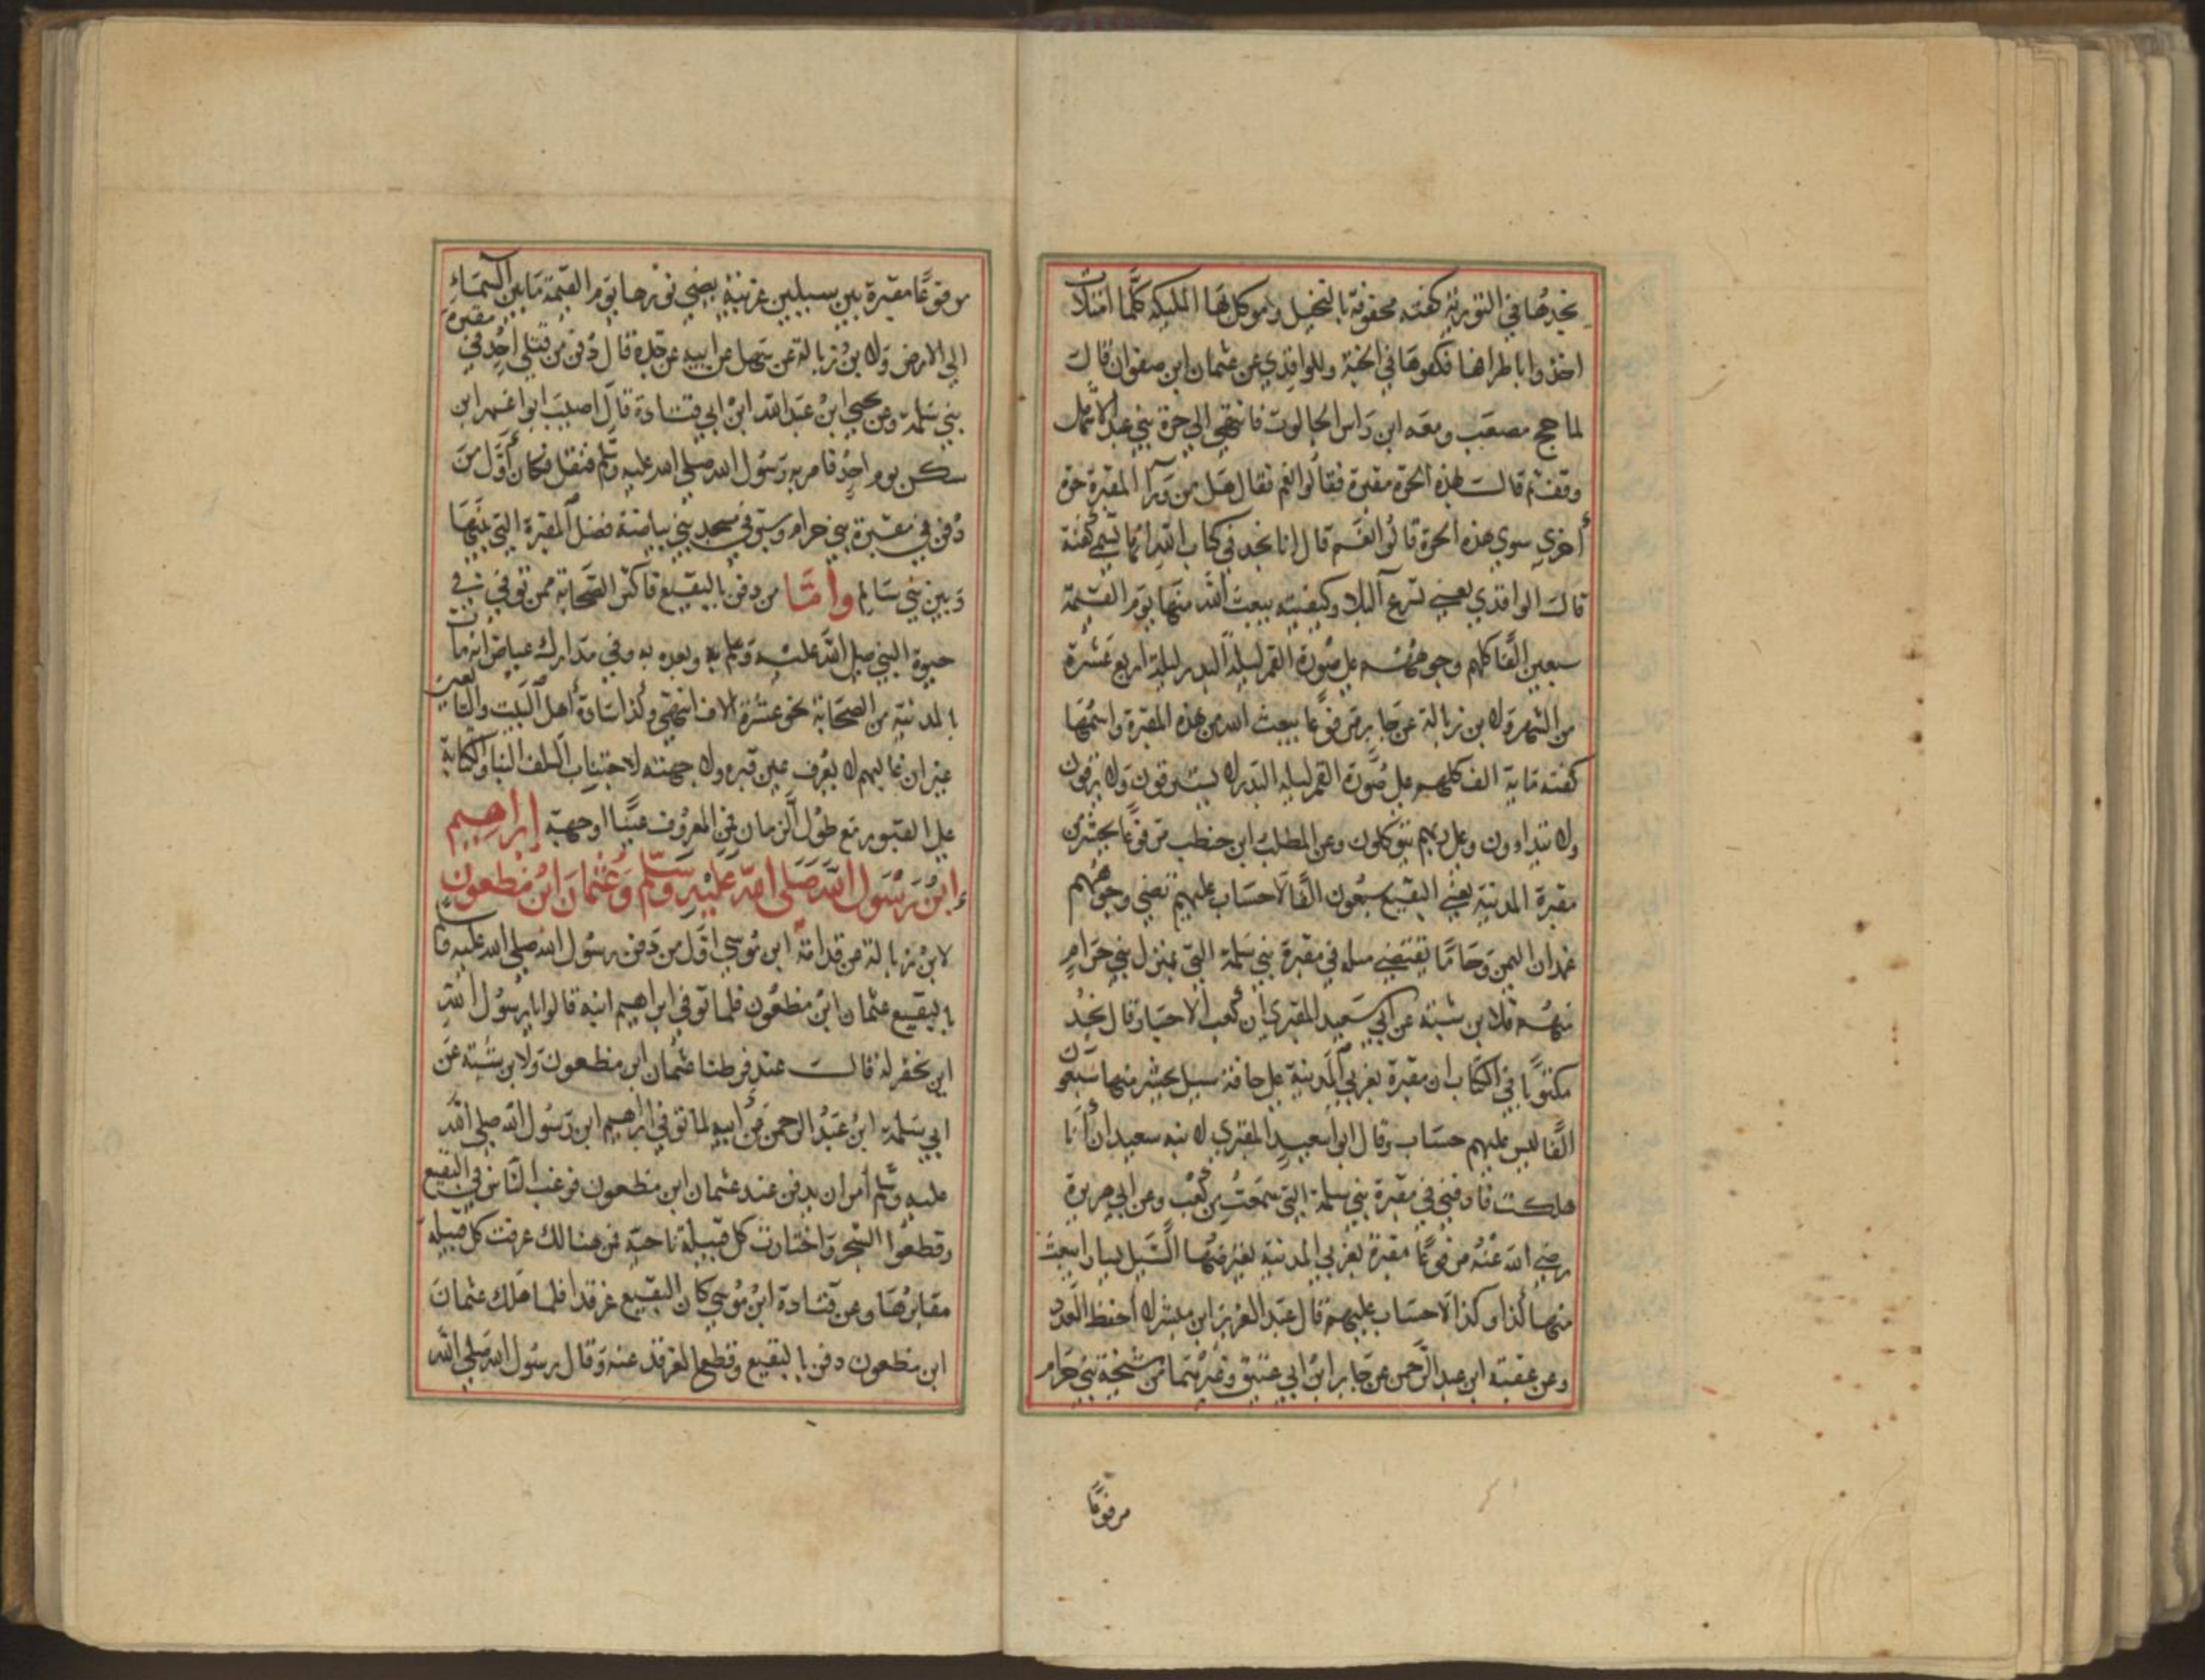 نجدها في التورية كفته محفوفة بالنخيل وموكل بها الملئكه كلما امتلات
اخذوا باطرافها فكفوها في الجنة وللواقدي عن عثمان ابن صفوان قالت
لما حج مصعب ومعه ابن راس الجالوت فانتهي الي حرة بني عبد الاشهل
وقف ثم قالت بهذه الحرة مقبرة فقالوا نعم فقال هل من ورآ المقبرة حرة
أخري سوي هذه الحرة قالوا نعم قال انا نجد في كتاب الله انها تسمي كفتة
قالت الواقدي يعني تسرع البلا وكفيته يبعث الله منها يوم القيمة
سبعين الفا كلهم وجوههم علي صورة القمر ليلة البدر ليلة اربع عشرة
من الشهر ولابن زبالة عن جابر مرفوعا يبعث الله من هذه المقبرة واسمها
كفته ماية الف كلهم علي صورة القمر ليلة البدر لا يسترقون ولا يرقون
ولا يتداوون وعلي ربهم يتوكلون وعن المطلب ابن حنطب مرفوعا يحشر من
مقبرة المدينة يعني البقيع سبعون الفا لا حساب عليهم تضي وجوههم
غمدان اليمن وجا ما يقتضي مثله في مقبرة بني سلمة التي بمنزل بني حرام
منهم فلابن شبته عن ابي سعيد المقبري ان كعب الاحبار قال نجد
مكتوبا في الكتاب ان مقبرة بغربي المدينة علي حافة سيل يحشر منها سبعون
الفا ليس عليهم حساب وقال ابوا سعيد المقبري لابنه سعيد ان أنا
هلكت فادفني في مقبرة بني سلمة التي سمعت من كعب وعن ابي هريرة
رضي الله عنه مرفوعا مقبرة بغربي المدينة يقرضها السيل يسارا يبعث
منها كذا وكذا لا حساب عليهم قال عبد العزيز ابن مبشر لا احفظ العدد
وعن عقبة ابن عبد الرحمن عن جابر ابن ابي عتيق وغيرهما من شيخة بني حرام
مرفوعا
مرفوعا مقبرة بين سيلين غربية يضي نورها يوم القيمة ما بين السماء
الي الارض ولابن زبالة عن سهل عن ابيه عن جده قال دفن من قتلي احد في مقبرة
بني سلمة وعن يحيي ابن عبد الله ابن ابي قتادة قال اصيب ابوا عمرابن
سكن يوم احد فامر به رسول الله صلي الله عليه وسلم فنقل فكان أول من
دفن في مقبرة بني حرام وسبق في مسجد بني بياضة فضل المقبرة التي بينها
وبين بني سالم وأما من دفن بالبقيع فاكثر الصحابة ممن توفي في
حيوة النبي صلي الله عليه وسلم به وبعده به وفي مدارك عياض انه مات
بالمدينة من الصحابة نحو عشرة الاف انتهي وكذا سادة أهل البيت والتابعين
غير ان غالبهم لا يعرف عين قبره ولا جهته لاجتناب السلف البنا والكتابة
علي القبور مع طول الزمان فمن المعروف عينا اوجهة إبراهيم
ابن رسول الله صلي الله عليه وسلم وعثمان ابن مظعون
لابن زبالة عن قدامة ابن موسي اول من دفن رسول الله صلي الله عليه وسلم
بالبقيع عثمان ابن مظعون فلما توفي ابراهيم ابنه قالوا يا رسول الله
اين نحفر له قالت عند فرطنا عثمان ابن مظعون ولابن شبته عن
ابي سلمة ابن عبد الرحمن عن أبيه لما توفي ابراهيم ابن رسول الله صلي الله
عليه وسلم أمر ان يدفن عند عثمان ابن مظعون فرغب الناس في البقيع
وقطعوا الشجر واختارت كل قبيلة ناحية فمن هنالك عرفت كل قبيلة
مقابرها وعن قتادة ابن موسي كان البقيع غرقدا فلما هلك عثمان
ابن مظعون دفن بالبقيع وقطع الغرقد عنه وقال رسول الله صلي الله